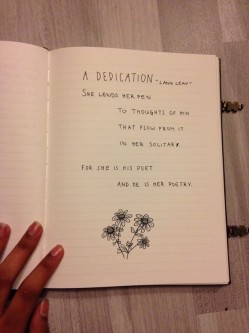 A DEDICATION - LANG LEAV -
SHE LENDS HER PEN
TO THOUGHTS OF HIM
THAT FLOW FROM IT
IN HER SOLITARY.
FOR SHE IS HIS POET
AND HE IS HER POETRY.